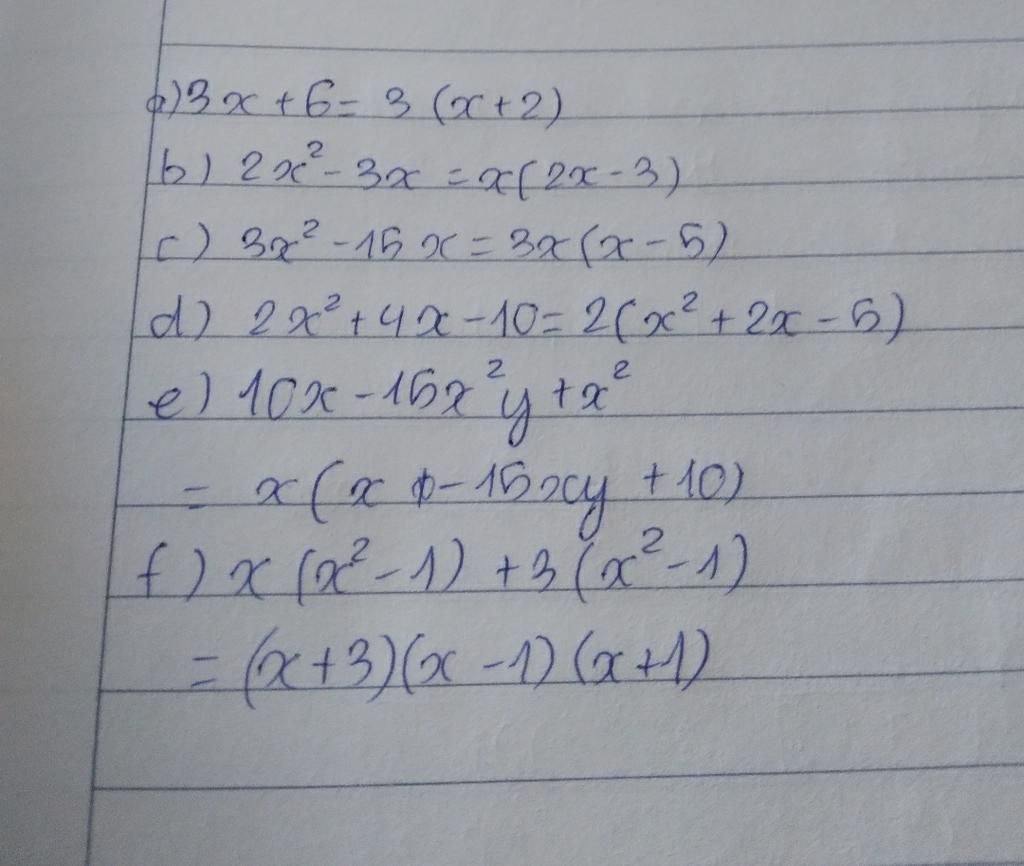 a) 3x + 6 = 3 (x+2)
b) 2x² - 3x = x(2x - 3)
c) 3x² - 15x = 3x(x - 5)
d) 2x² + 4x - 10 = 2(x² + 2x - 5)
e) 10x - 15x²y + x²
= x(x - 15xy + 10)
f) x(x² - 1) + 3(x² - 1)
= (x+3)(x - 1)(x+1)